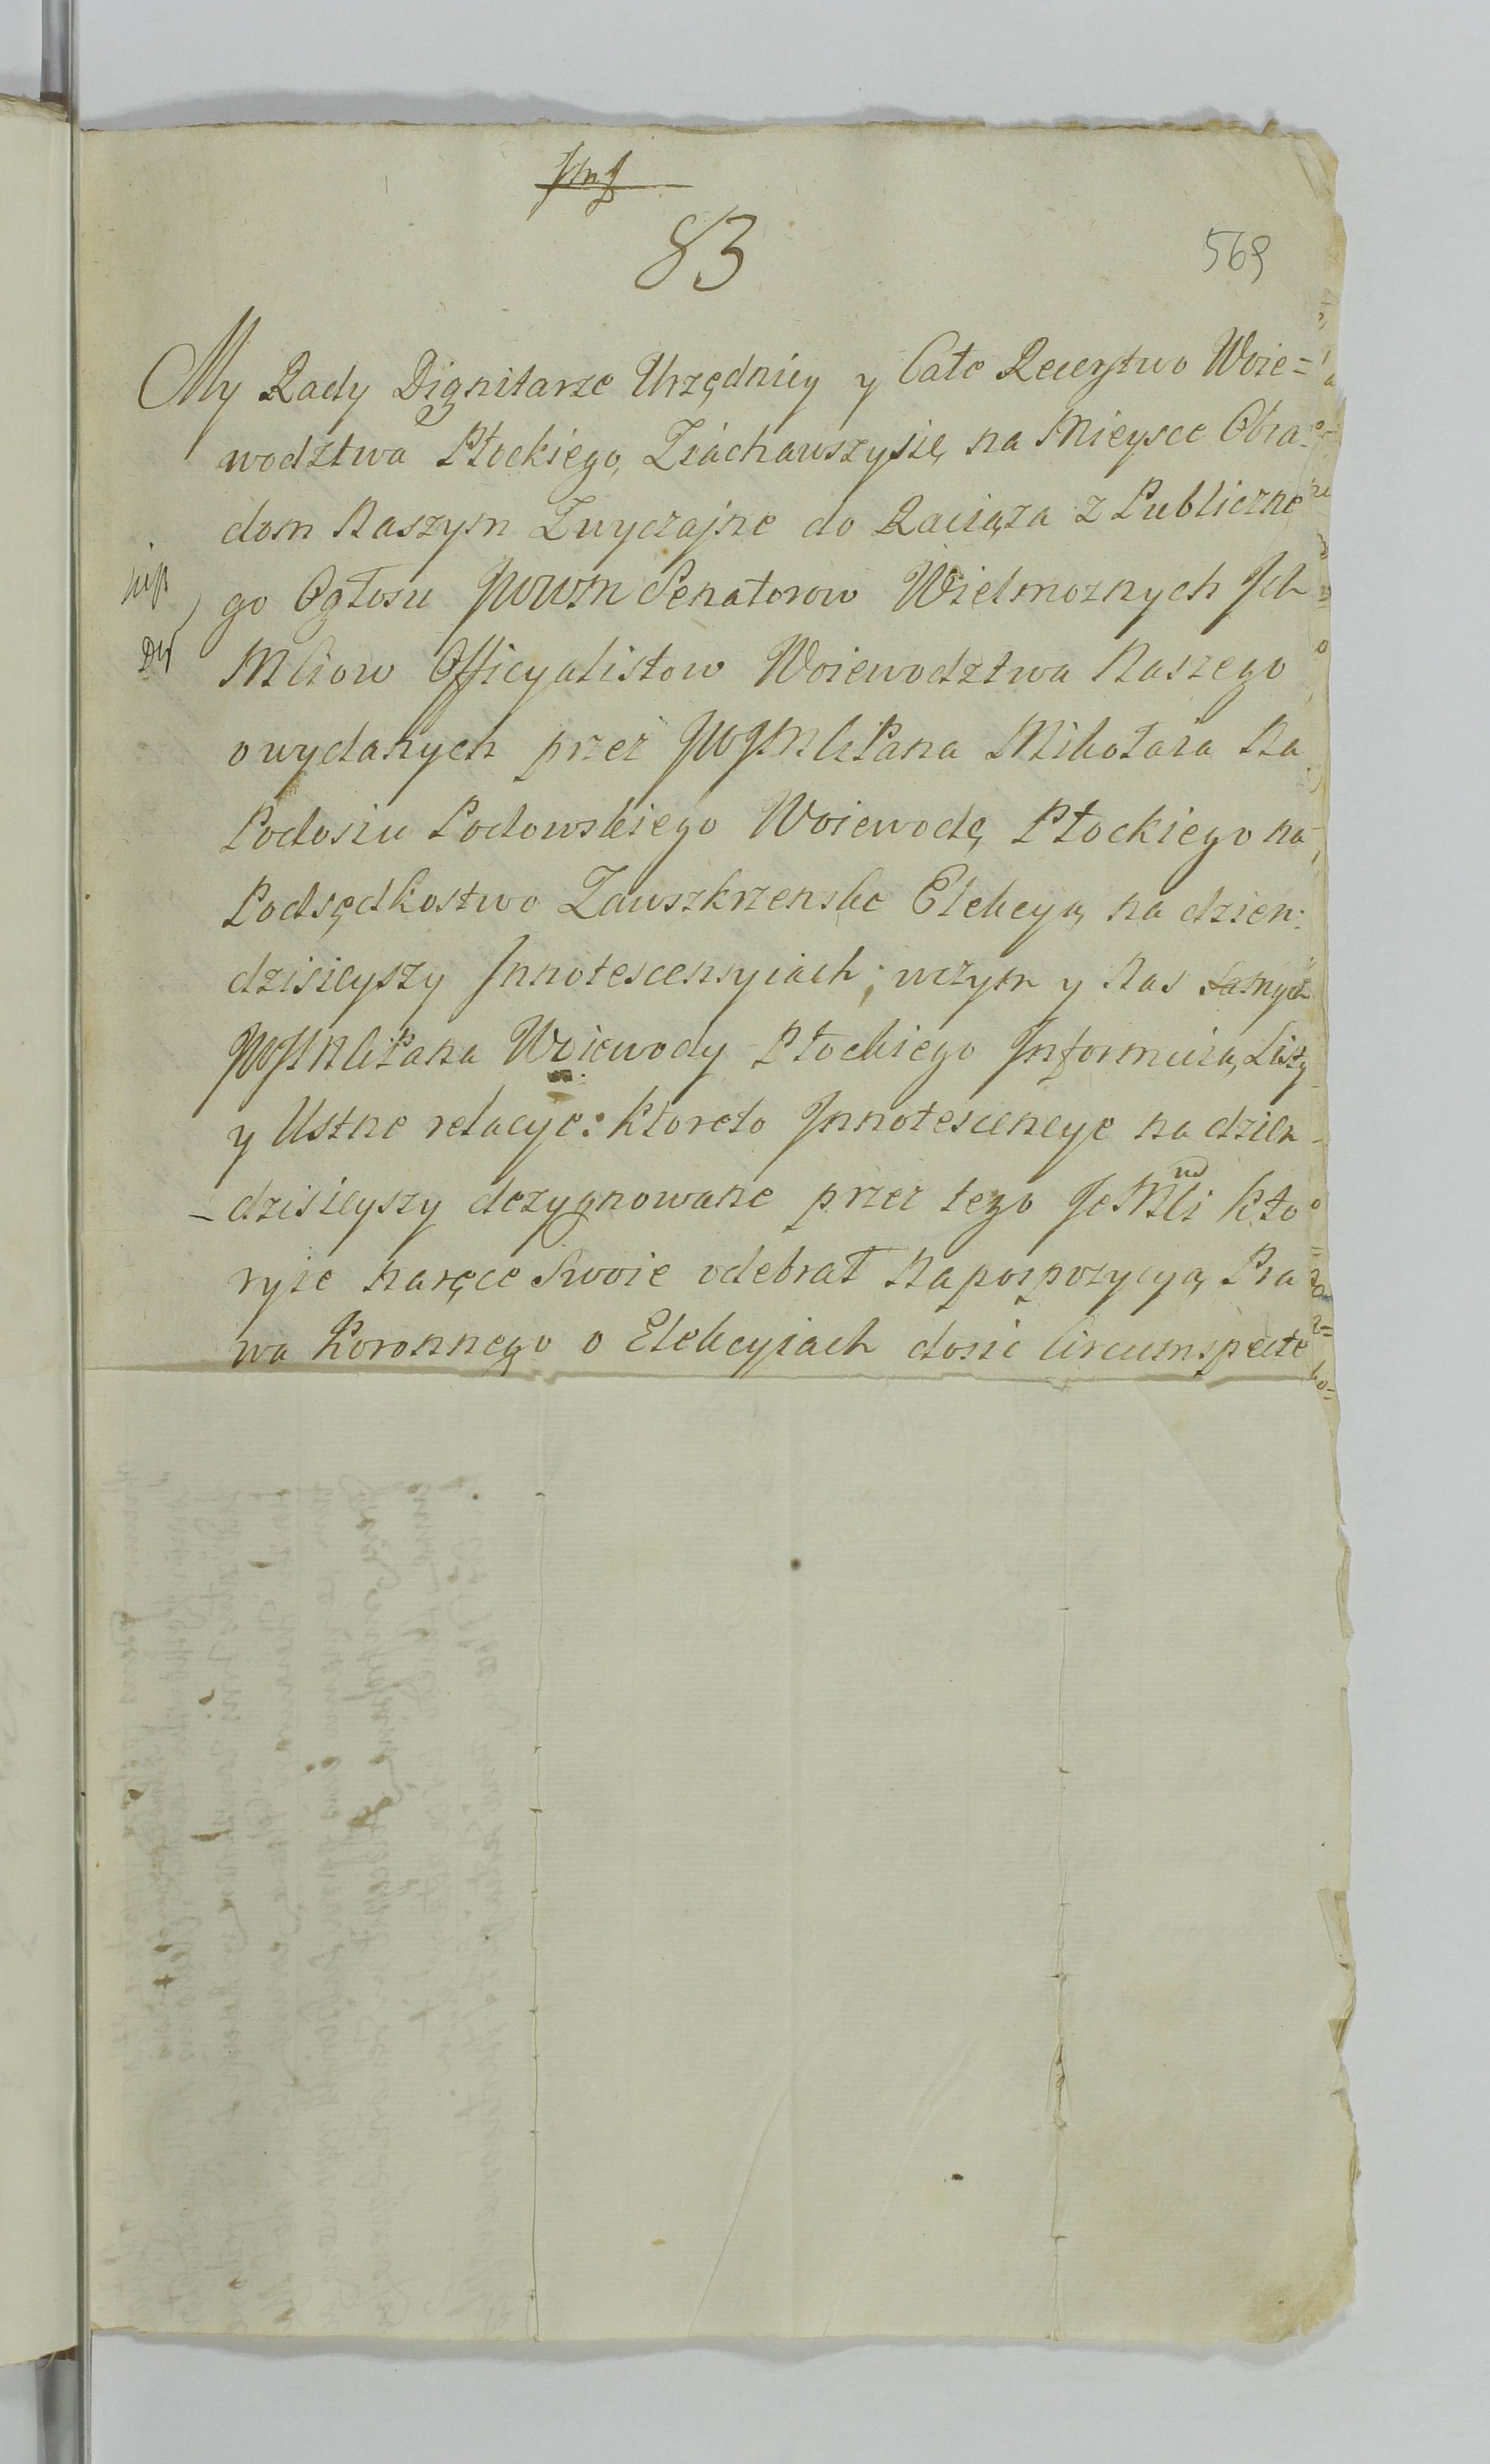 83
569
My Rady Dignitarze Urzędnicy y Całe Rycerstwo Woie=
wodztwa Płockiego, Ziachawszysię na Mieysce Obra-
dom Naszym Zwyczajne do Raciąża z Publiczne
go Ogłosu JWWM Senatorow Wielmoznych Ich
Mciow Officyalistow Woiewodztwa Naszego
o wydanych przez JWJMCiPana Mikołaia Na
Podosiu Podowskiego Woiewodę Płockiego na
Podsędkostwo Zawszkrzenske Elekcyą na dzien:
dzisieyszy Innotescensyiach; wczym y Nas Samych
JWJMCiPana Woiewody Płockiego Informuią Listy
y Ustne relacye: Ktoreto Innotescencye na dzien
-dzisieyszy dezygnowane przez tego JeMCi Kto
rysie naręce Swoie odebrał Napospozycyą Pra
wa Koronnego o Elekcyiach dosic Circumspecte